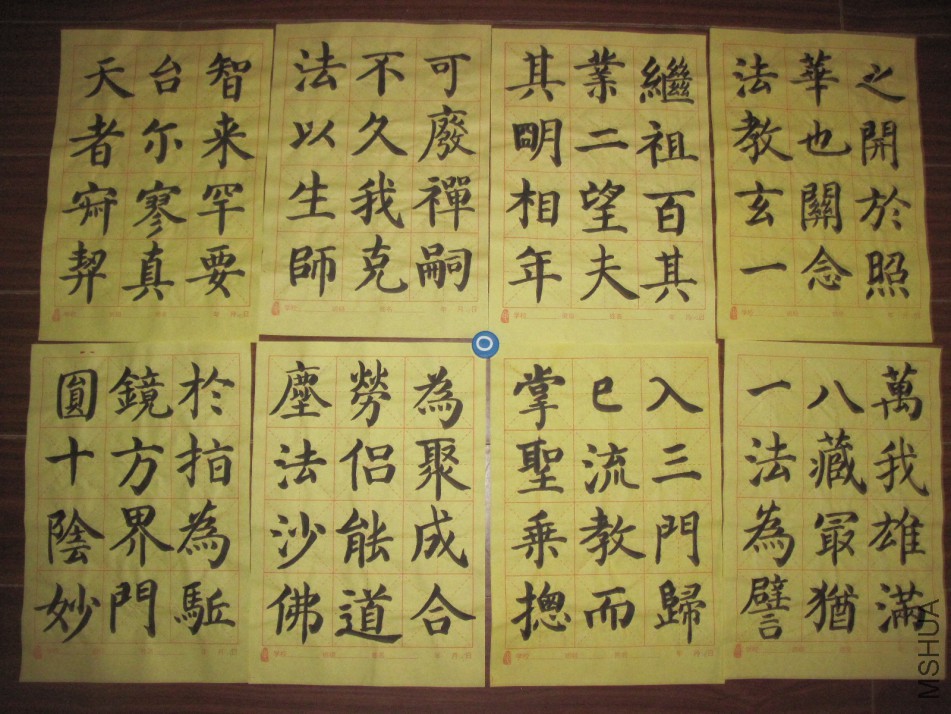 天台智
者尔来
寂寥罕
契真要
法不可
以久廢
生我禪
師克嗣
其業繼
明二祖
相望百
年夫其
法華之
教也開
玄關於
一念照
圓鏡於
十方指
陰界為
妙門駈
塵勞為
法侶聚
沙能成
佛道合
掌已入
聖流三
乘教門
揔而歸
一八萬
法藏我
為冣雄
譬猶滿
MSHUA